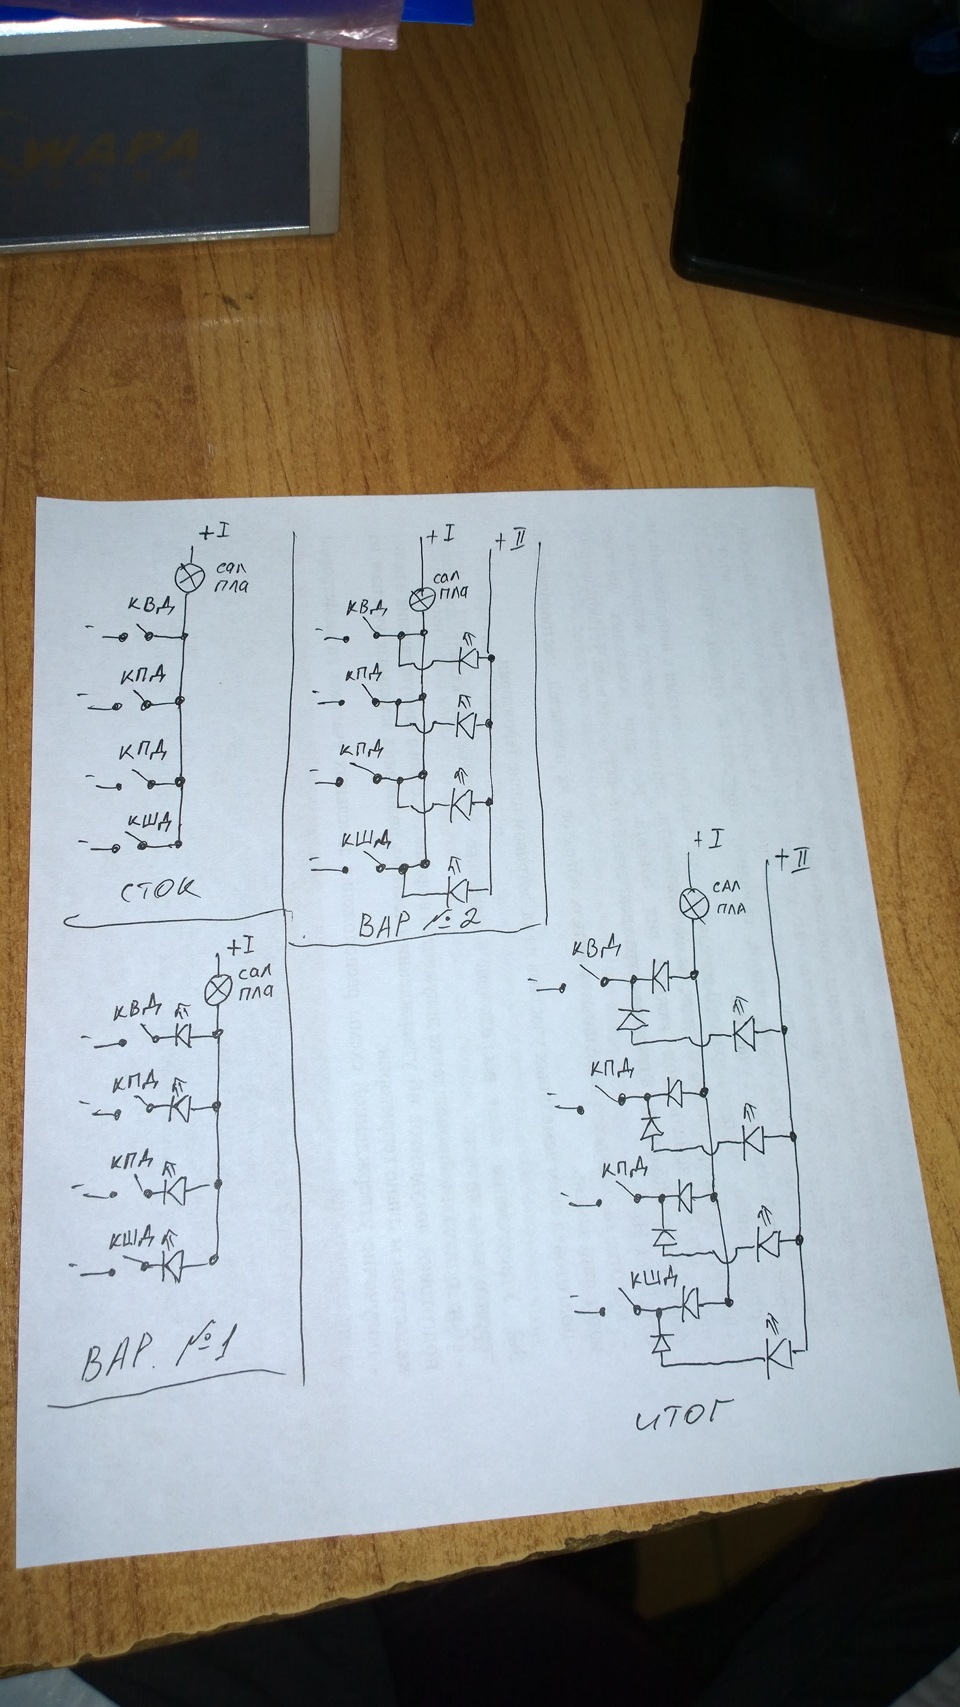 WAPA
+I
сал
пла
КВД
-
КПД
-
КПД
-
КШД
-
СТОК
+I
+II
сал
пла
КВД
-
КПД
-
КПД
-
КШД
-
ВАР №2
+I
сал
пла
КВД
-
КПД
-
КПД
-
КШД
-
ВАР. №1
+I
+II
САЛ
ПЛА
КВД
-
КПД
-
КПД
-
КШД
-
ИТОГ